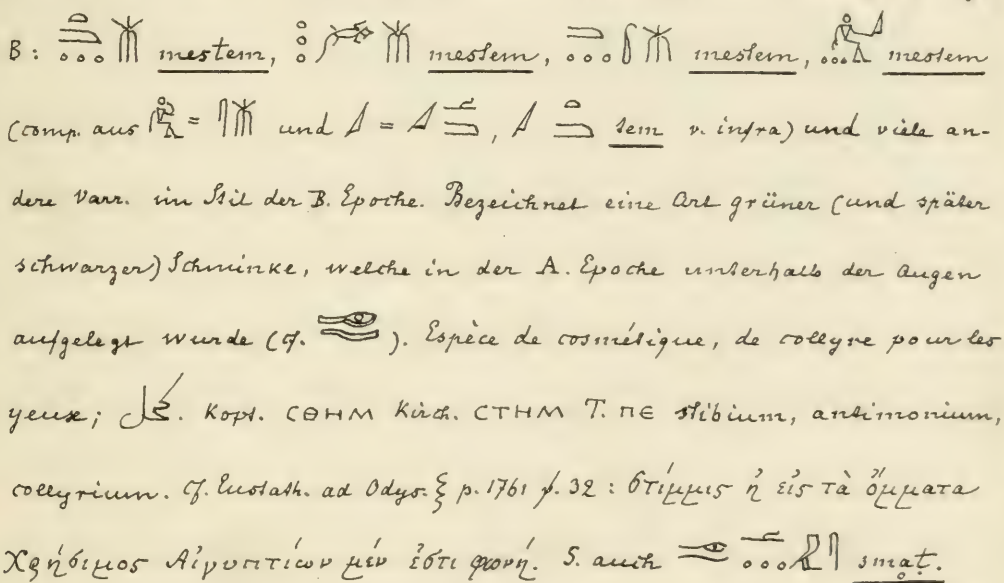 B: mestem, mestem, mestem, mestem
(comp. aus = und = , sem v. infra) und viele an-
dere Varr. im Stil der B. Epoche. Bezeichnet eine Art grüner (und später
schwarzer) Schminke, welche in der A. Epoche unterhalb der Augen
aufgelegt wurde (cf. ). Espèce de cosmétique, de collyre pour les
yeux; كحل. Kopt. ⲤⲐⲎⲘ Kirch. ⲤⲦⲎⲘ T. ⲠⲈ stibium, antimonium,
collyrium. cf. Eustath. ad Odys. ξ p. 1761 32 : στίμμις ἡ εἰς τὰ ὄμματα
χρήσιμος Αἰγυπτίων μέν ἐστι φωνή. S. auch smaṭ.